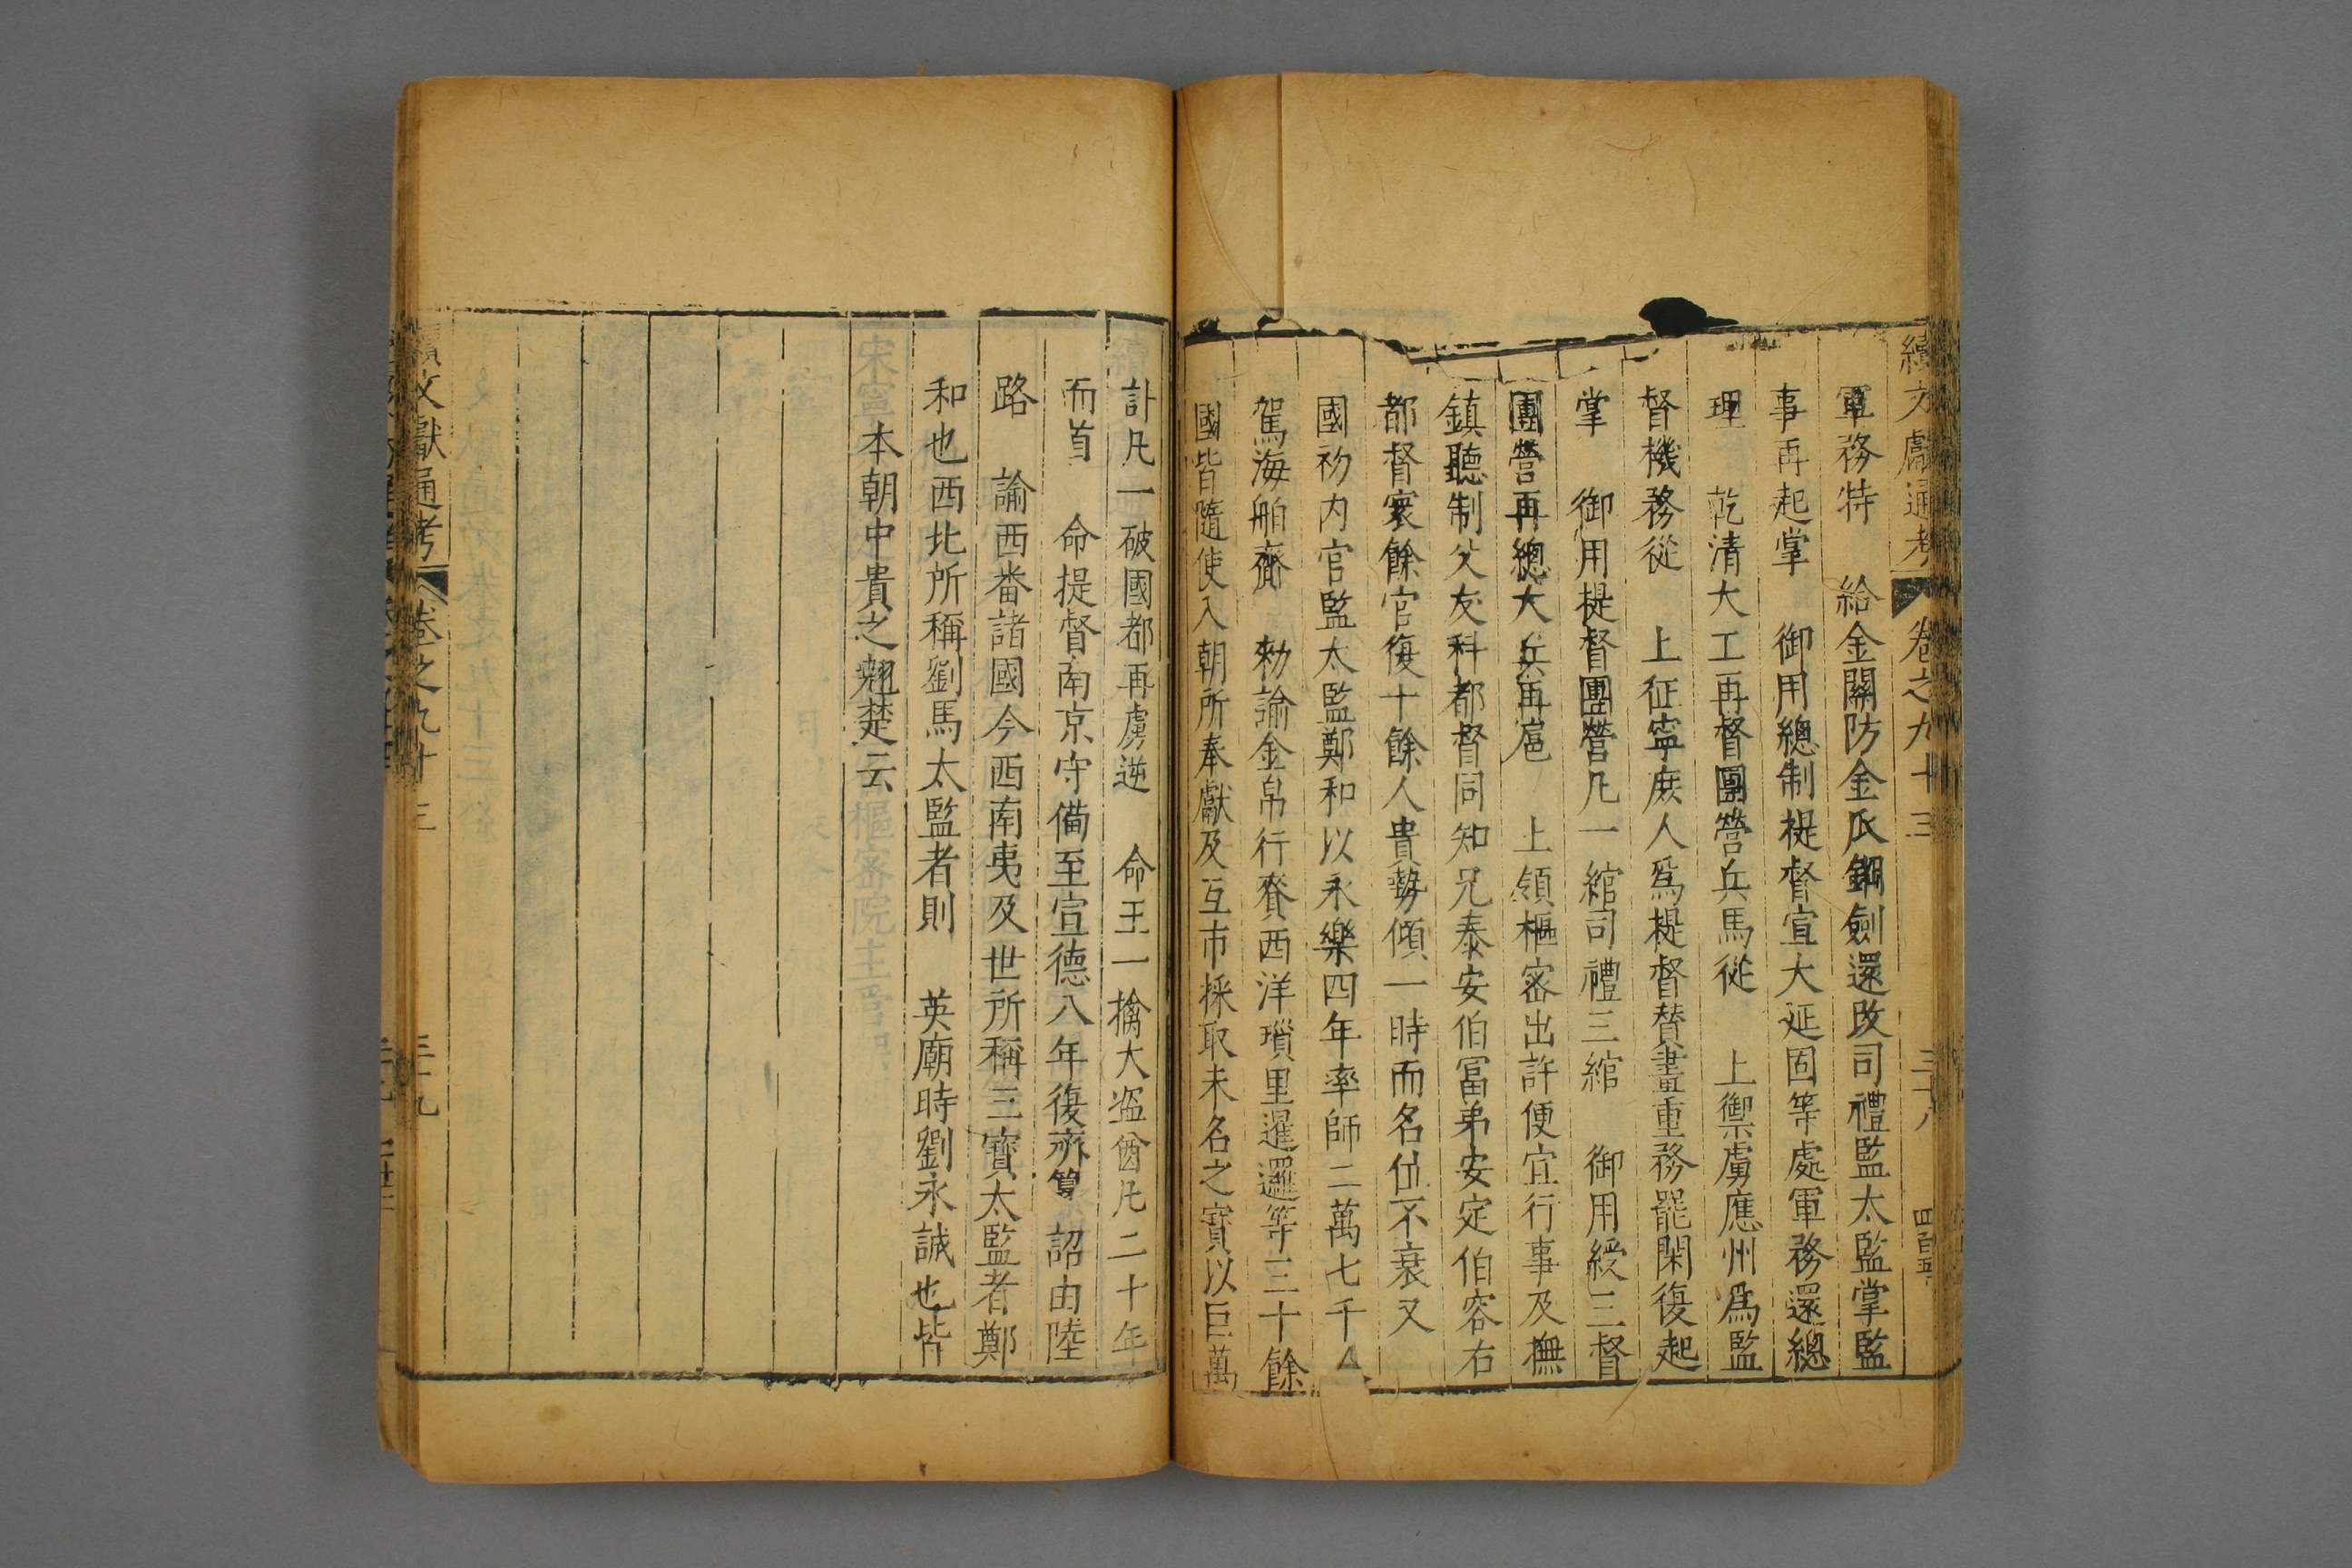 續文獻通考 卷之九十三 三十八 四百五
軍務特 給金關防金瓜鋼劍還改司禮監太監掌監
事再起掌 御用總制提督宣大延固等處軍務還總
理 乾清大工再督團營兵馬從 上禦虜應州爲監
督機務從 上征寧庶人爲提督贊畫重務罷閑復起
掌 御用提督團營凡一綰司禮三綰 御用綬三督
團營再總大兵再扈 上領樞密出許便宜行事及撫
鎮聽制父友科都督同知兄泰安伯富弟安定伯容右
都督寰餘官復十餘人貴勢傾一時而名位不衰又
國初内官監太監鄭和以永樂四年率師二萬七千人
駕海舶齎 勑諭金帛行賚西洋瑣里暹邏等三十餘
國皆隨使入朝所奉獻及互市採取未名之寶以巨萬
計凡一破國都再虜逆 命王一擒大盜酋凡二十年
而首 命提督南京守備至宣德八年復齎算 詔由陸
路 諭西畨諸國今西南夷及世所稱三寶太監者鄭
和也西北所稱劉馬太監者則 英廟時劉永誠也皆
本朝中貴之翹楚云
續文獻通考 卷之九十三 三十九